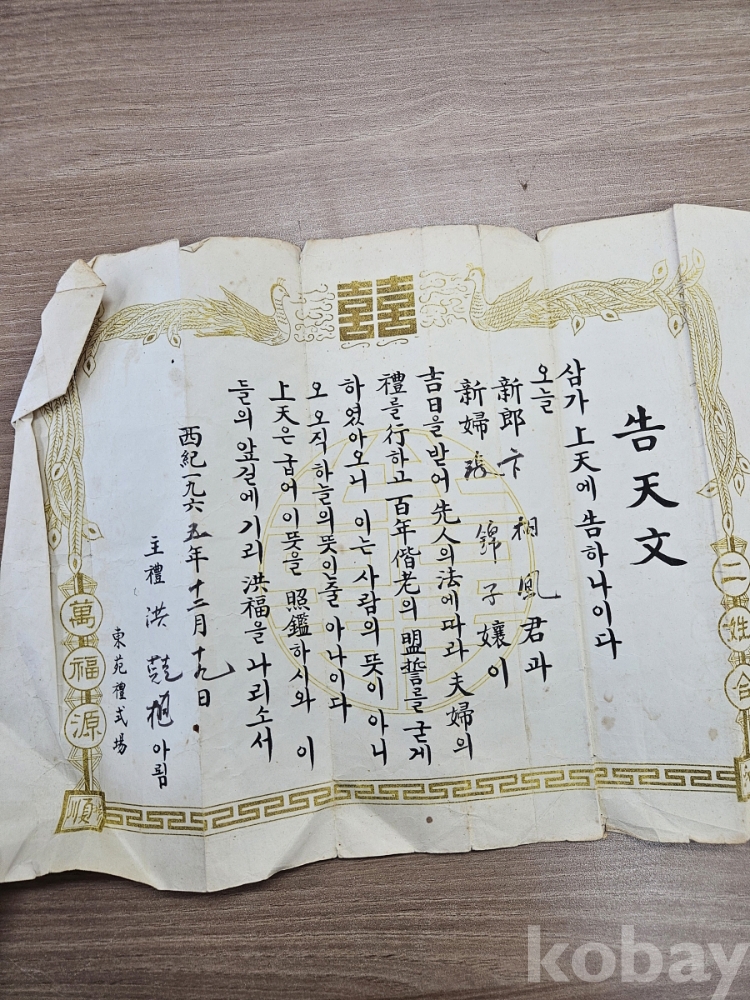 囍
告天文
삼가 上天에 告하나이다
오늘
新郎 卞 相鳳君과
新婦 張 錦子孃이
吉日을 받어 先人의 法에 따라 夫婦의
禮를 行하고 百年偕老의 盟誓를 굳게
하였아오니 이는 사람의 뜻이 아니
오 오직 하늘의 뜻인줄 아나이다
上天은 굽어 이 뜻을 照鑑하시와 이
들의 앞길에 기리 洪福을 나리소서
西紀一九六五年 十二月 十九日
主禮 洪 아룀
東苑禮式場
二姓合
萬福源
順
kobay